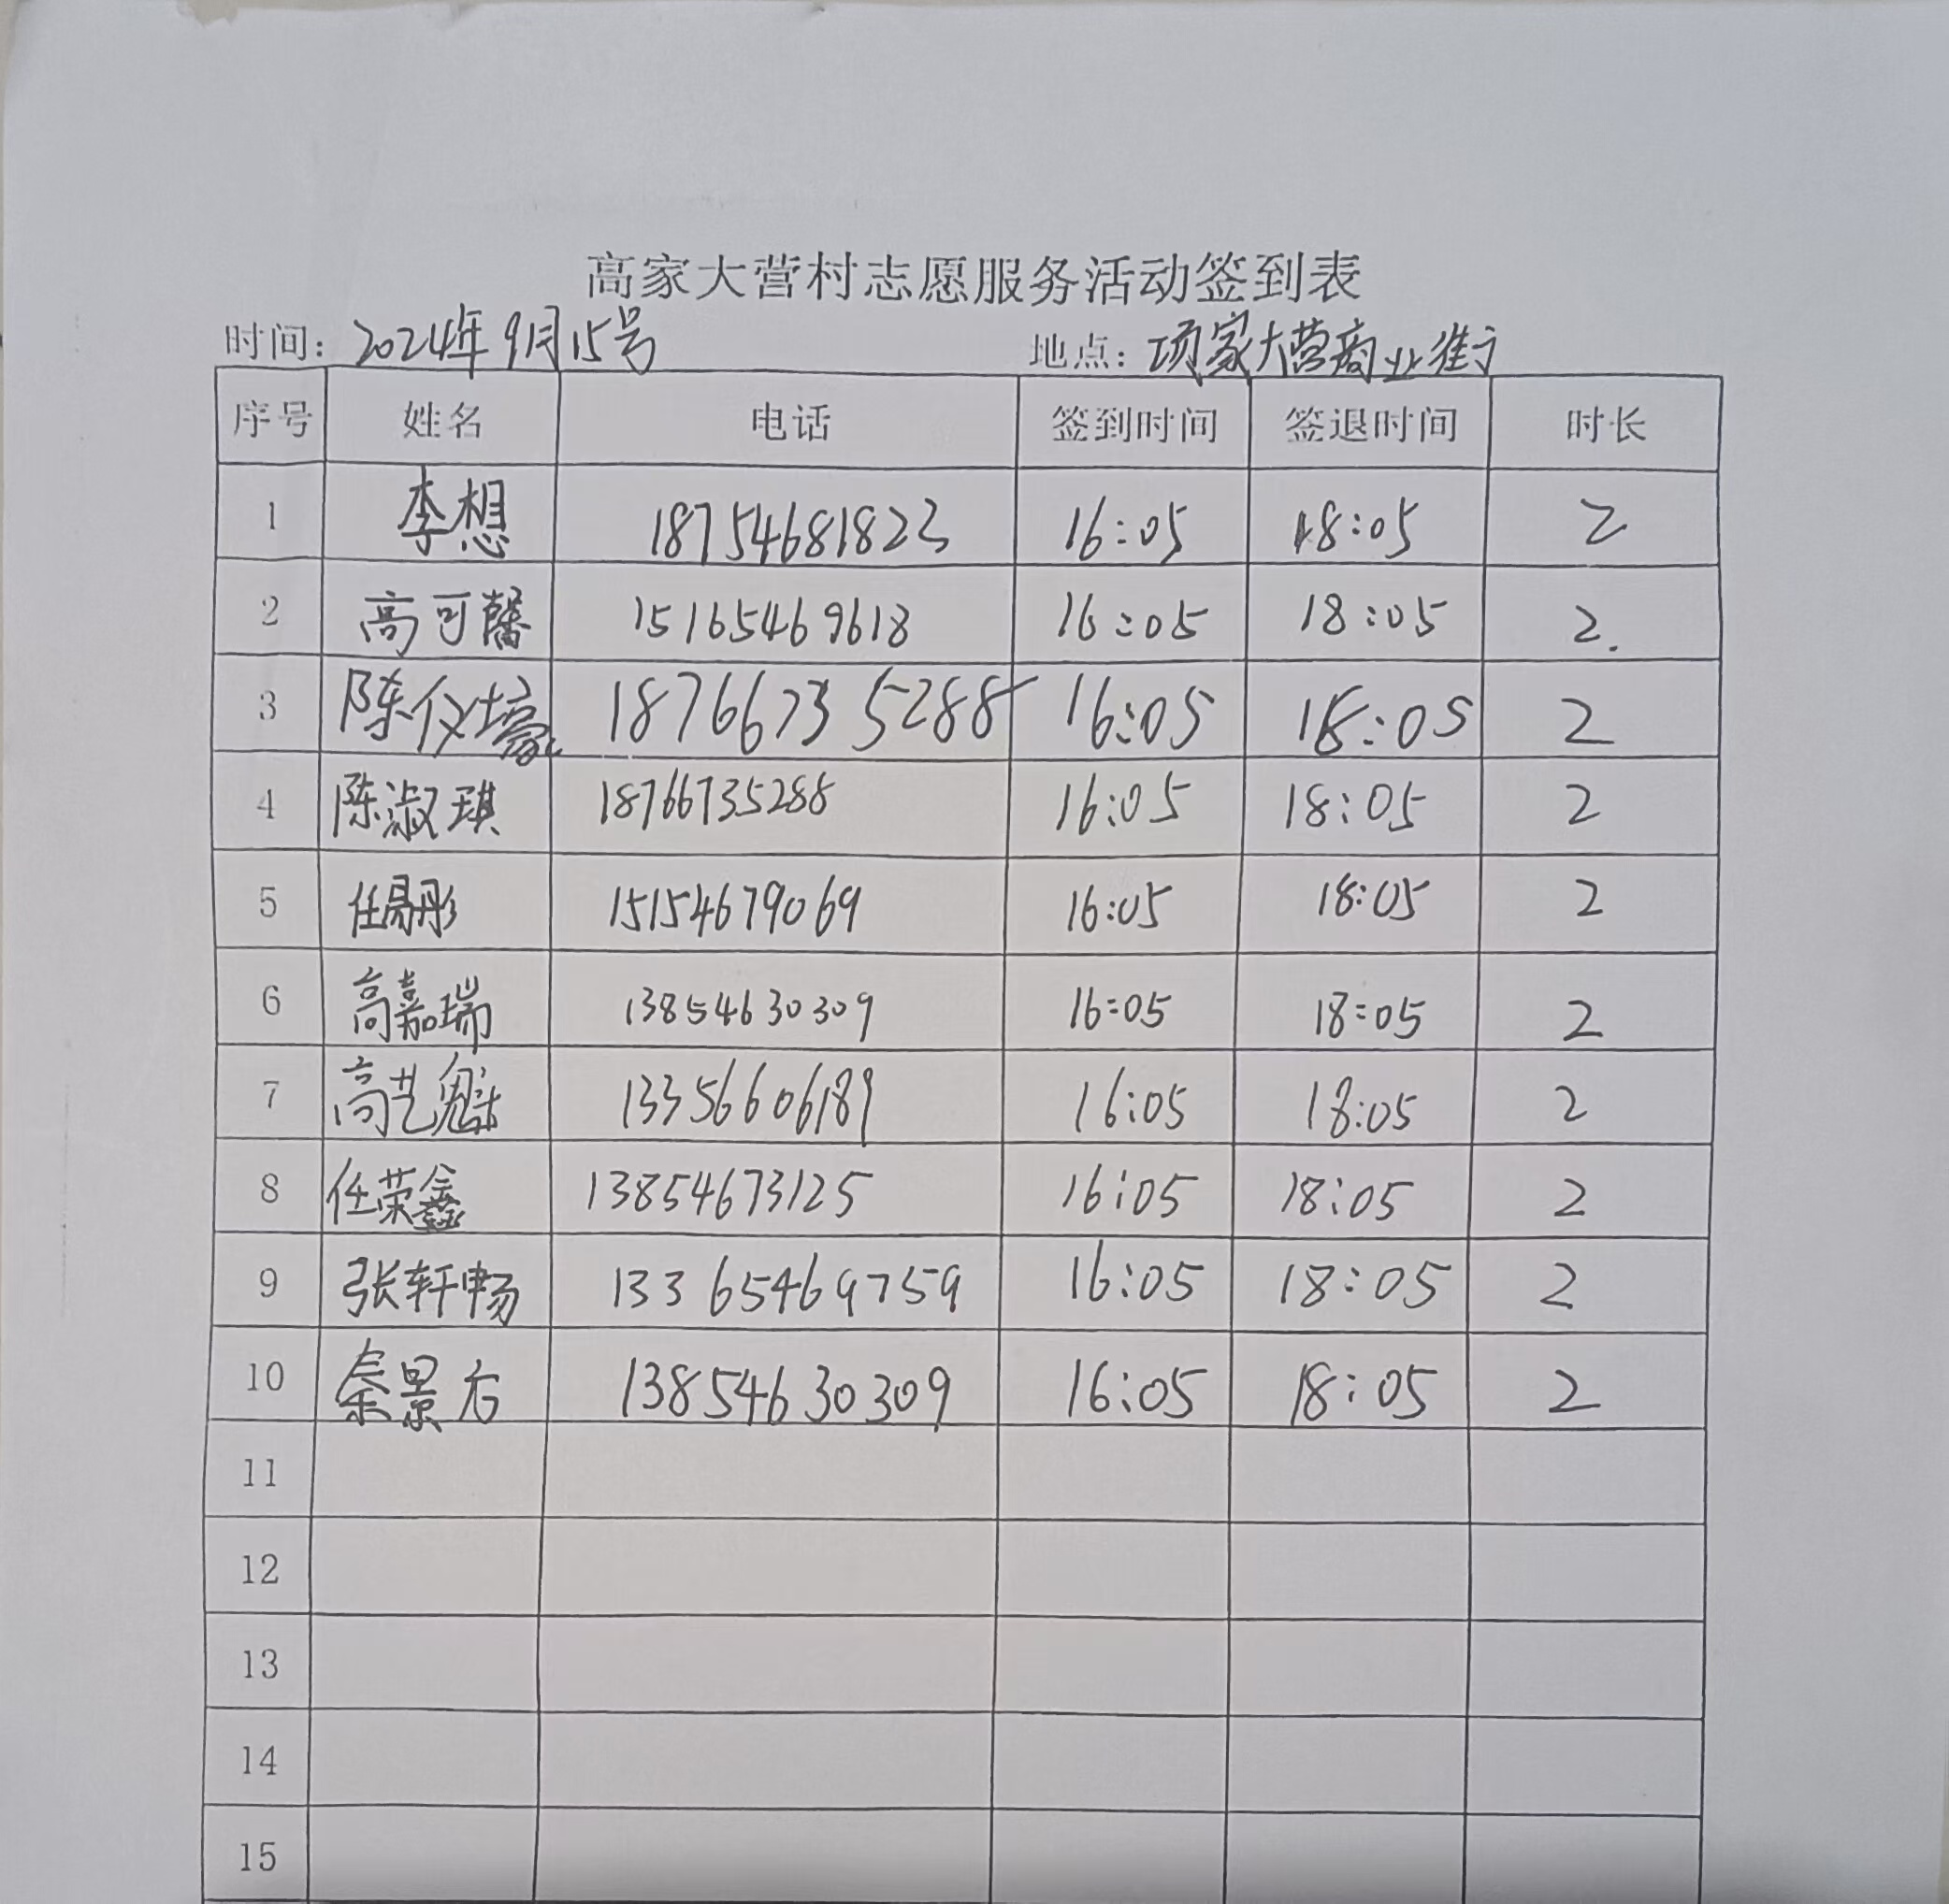 高家大营村志愿服务活动签到表
时间: 2024年9月15号 地点: 项家大营商业街
序号 姓名 电话 签到时间 签退时间 时长
1 李想 18754681823 16:05 18:05 2
2 高可馨 15165469618 16:05 18:05 2.
3 陈仪壕 18766735288 16:05 18:05 2
4 陈淑琪 18766735288 16:05 18:05 2
5 任易彤 15154679069 16:05 18:05 2
6 高嘉瑞 13854630309 16:05 18:05 2
7 高艺魁 13356606189 16:05 18:05 2
8 任荣鑫 13854673125 16:05 18:05 2
9 张轩畅 13365469759 16:05 18:05 2
10 景 13854630309 16:05 18:05 2
11
12
13
14
15